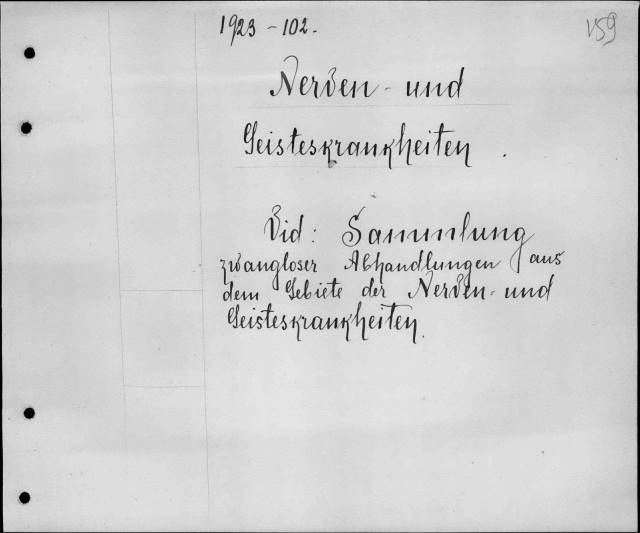 1923-102.
V59
Nerven- und
Geisteskrankheiten.
Vid: Sammlung
zwangloser Abhandlungen aus
dem Gebiete der Nerven- und
Geisteskrankheiten.